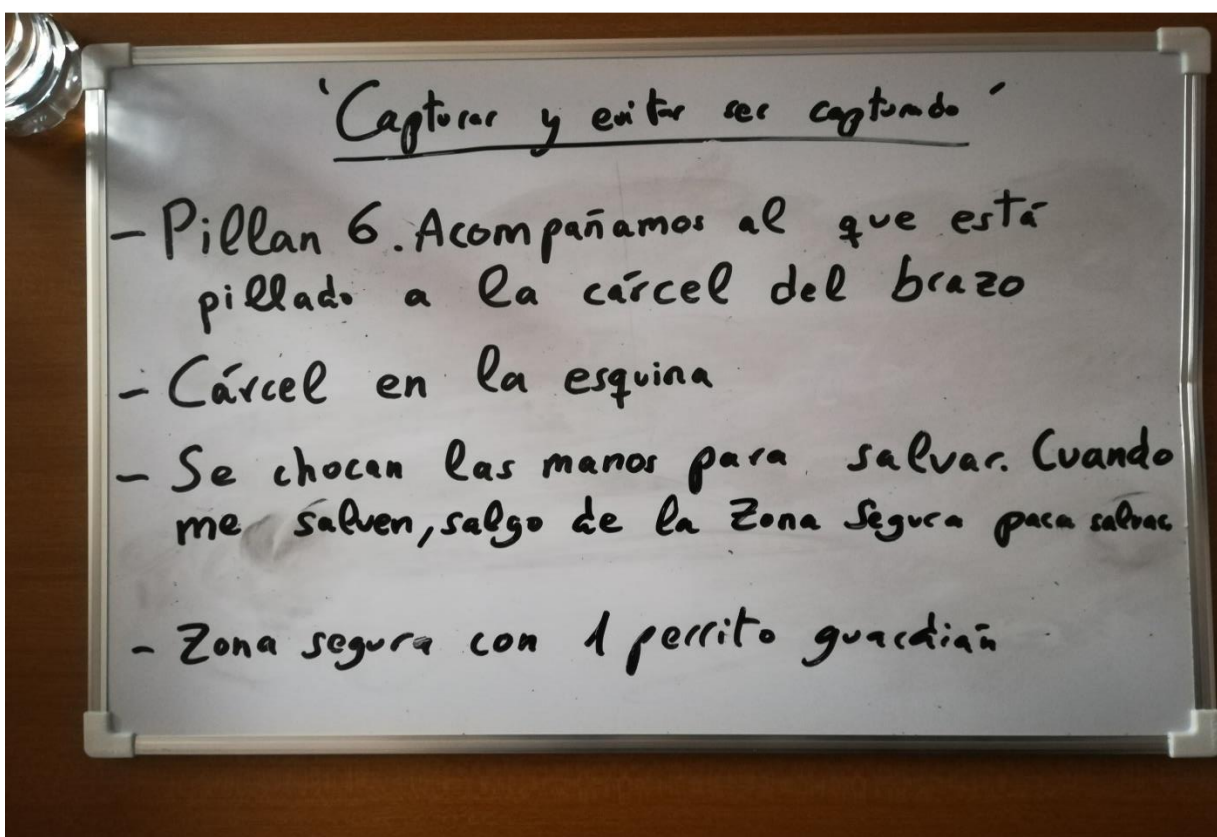 'Capturar y evitar ser capturado'
- Pillan 6. Acompañamos al que está
pillado a la cárcel del brazo
- Cárcel en la esquina
- Se chocan las manos para salvar. Cuando
me salven, salgo de la Zona Segura para salvar
- Zona segura con 1 perrito guardián